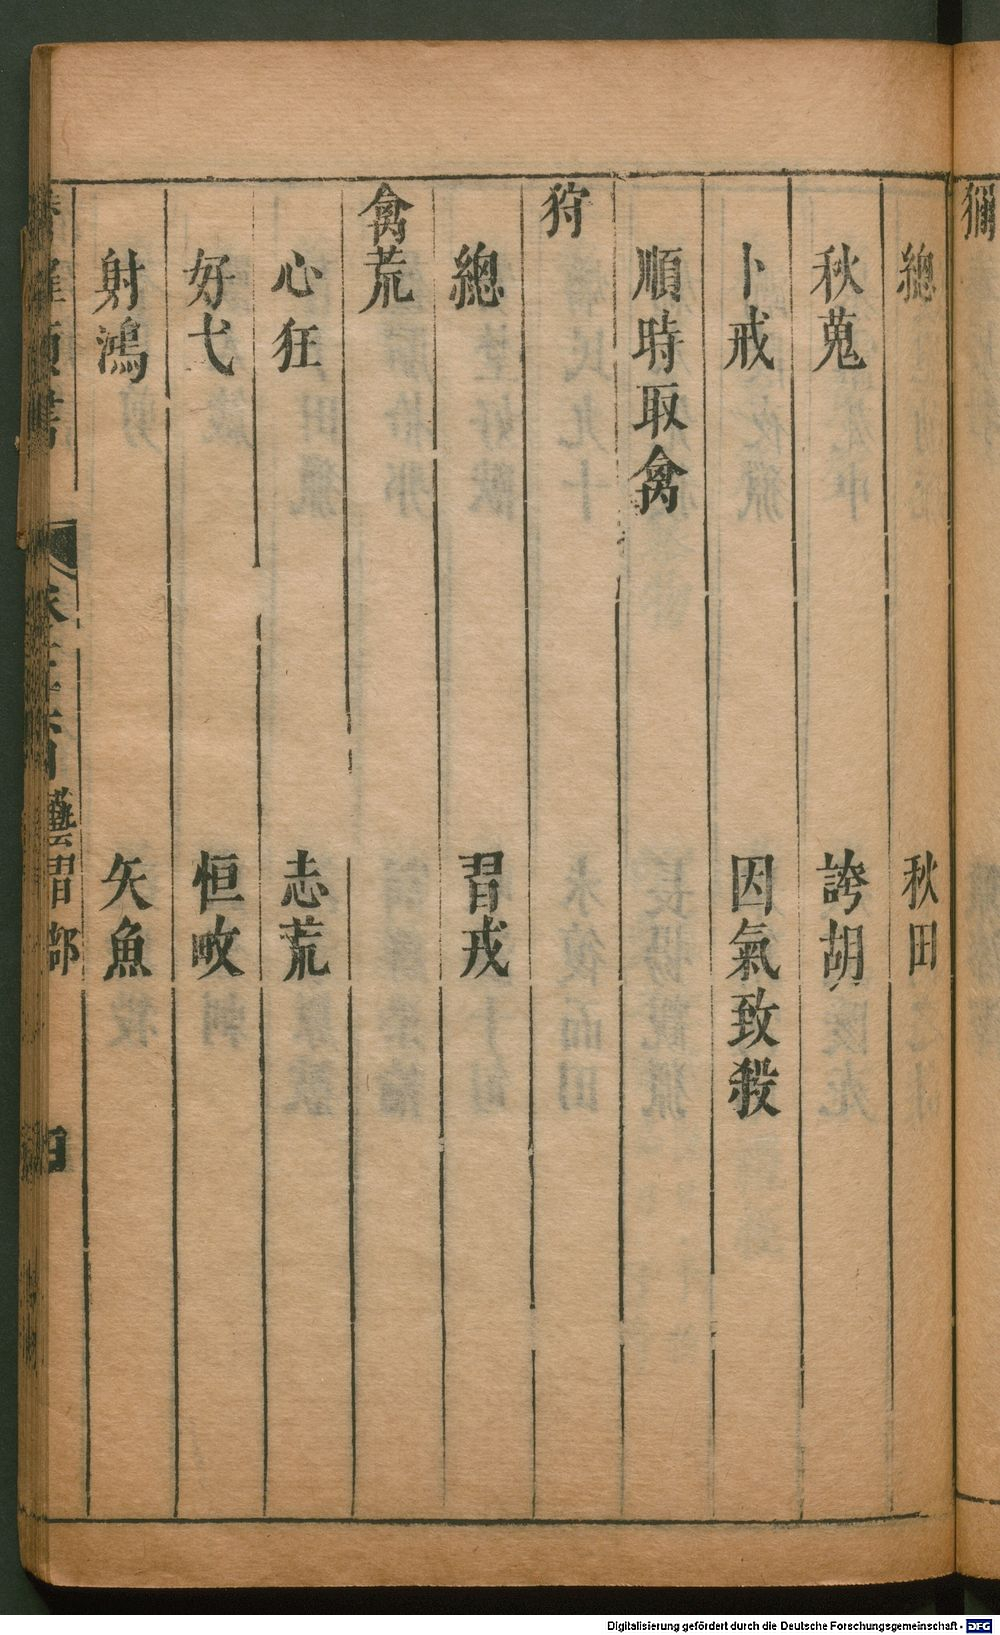 獮
總 秋田
秋蒐 誇胡
卜戒 因氣致殺
順時取禽
狩
總 習戎
禽荒
心狂 志荒
好弋 恒畋
射鴻 矢魚
藝習部
Digitalisierung gefördert durch die Deutsche Forschungsgemeinschaft - DFG